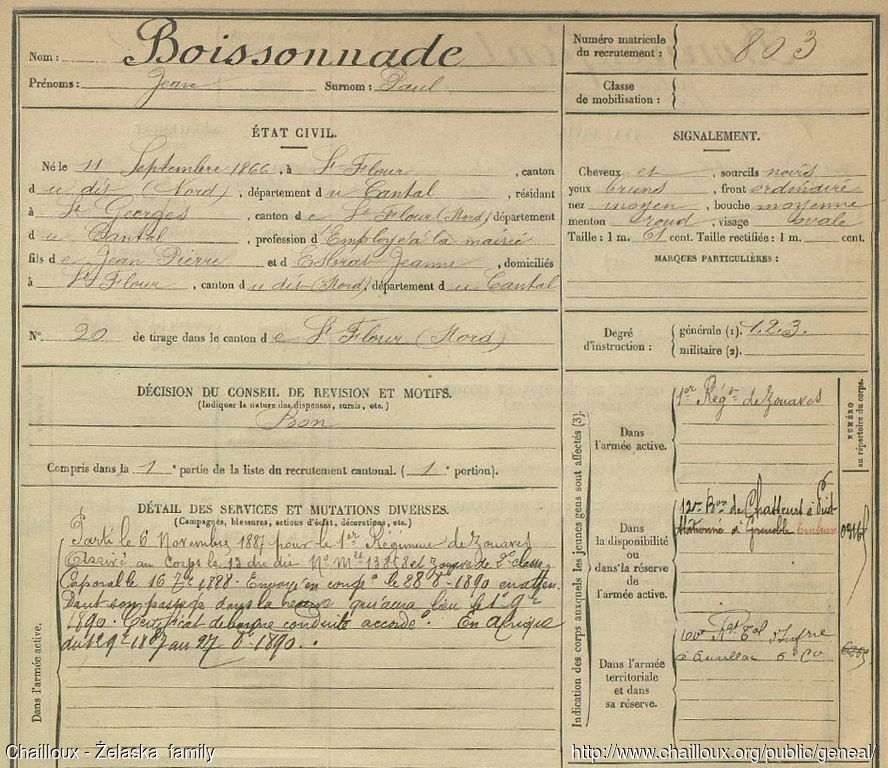 Nom : Boissonnade
Prénoms : Jean Surnom : Paul
ÉTAT CIVIL.
Né le 11 Septembre 1866, à St Flour, canton
du dit (Nord), département du Cantal, résidant
à St Georges, canton de St Flour (Nord) département
du Cantal, profession d'Employé à la mairie
fils de Jean Pierre et d'Estival Jeanne, domiciliés
à St Flour, canton du dit (Nord), département du Cantal
N° 20 de tirage dans le canton de St Flour (Nord)
DÉCISION DU CONSEIL DE REVISION ET MOTIFS.
(Indiquer la nature des dispenses, sursis, etc.)
Bon
Compris dans la 1e partie de la liste du recrutement cantonal. (1e portion).
DÉTAIL DES SERVICES ET MUTATIONS DIVERSES.
(Campagnes, blessures, actions d'éclat, décorations, etc.)
Dans l'armée active.
Parti le 6 Novembre 1887 pour le 1er Régiment de Zouaves
Arrivé au Corps le 13 du dit No Mle Zouave de 2e classe
Caporal le 16 1888. Envoyé en congé le 28 1890 en atten
dant son passage dans la réserve qui aura lieu le 1er
1890. Certificat de bonne conduite accordé. En Afrique
du 1887 au 27 1890.
Numéro matricule
du recrutement : 803
Classe
de mobilisation :
SIGNALEMENT.
Cheveux et, sourcils noirs
yeux bruns, front ordinaire
nez moyen, bouche moyenne
menton rond, visage ovale
Taille : 1 m. 61 cent. Taille rectifiée : 1 m. cent.
MARQUES PARTICULIÈRES :
Degré
d'instruction :
générale (1). 1.2.3.
militaire (2).
Indication des corps auxquels les jeunes gens sont affectés (3).
NUMÉRO
au répertoire du corps.
Dans
l'armée active.
1er Régt de Zouaves
Dans
la disponibilité
ou
dans la réserve
de
l'armée active.
12e Bon de Chasseurs à Pied
stationné à Grenoble Embrun
Dans l'armée
territoriale
et dans
sa réserve.
100e Rgt Tal d'Infrie
à Aurillac 6e Cie
Chailloux - Żelaska family
http://www.chailloux.org/public/geneal/